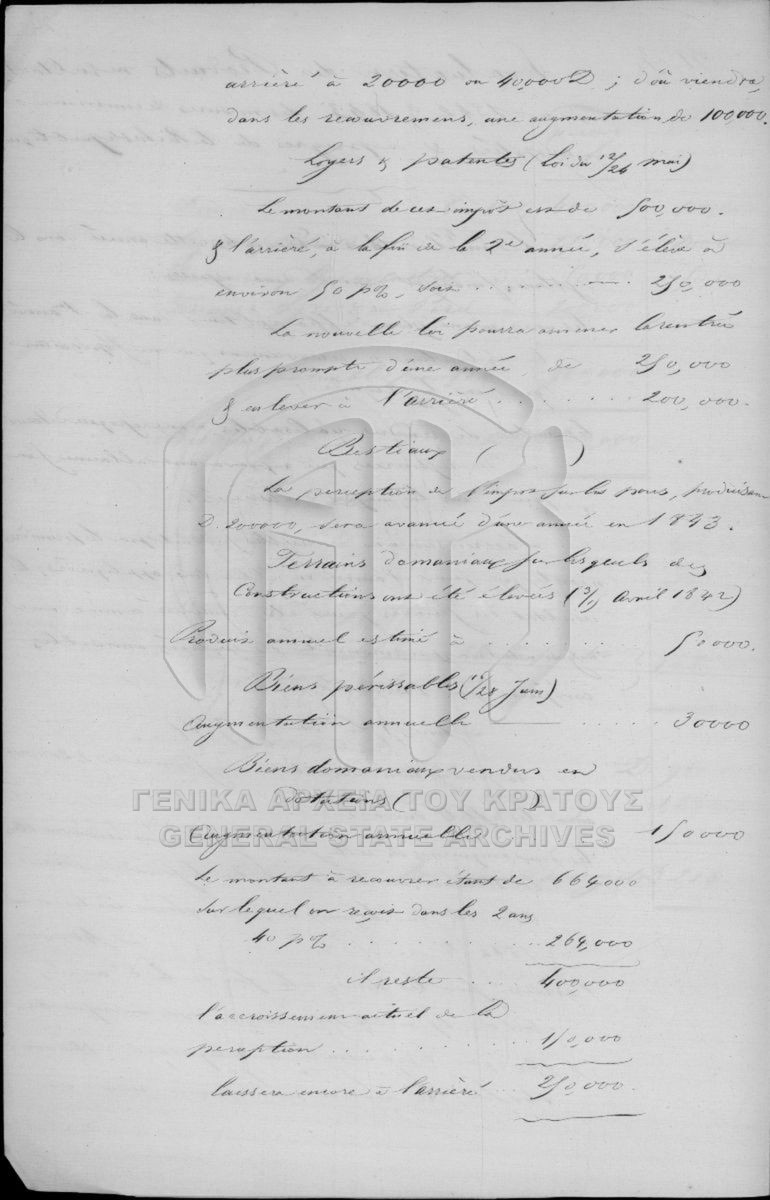 arriéré à 20000 ou 40,000 D ; d'où viendra,
dans les recouvremens, une augmentation de 100,000.
Loyers & patentes (Loi du 12/24 mai)
Le montant de cet impôt est de 500,000.
& l'arriéré, à la fin de la 2e année, s'élève à
environ 50 p%, soit . . . . . . . . 250,000
La nouvelle loi pourra amener la rentrée
plus prompte d'une année, de 250,000
& enlever à l'arriéré . . . . . . . 200,000.
Bestiaux ( )
La perception de l'impôt sur les porcs, produisant
D. 200000, sera avancée d'une année en 1843.
Terrains domaniaux sur lesquels des
Constructions ont été élevées ( Avril 1842)
Produit annuel estimé à . . . . . . . 50000.
Biens périssables (16/28 Juin)
Augmentation annuelle . . . . . 30000
Biens domaniaux vendus en
dotations ( )
ΓΕΝΙΚΑ ΑΡΧΕΙΑ ΤΟΥ ΚΡΑΤΟΥΣ
GENERAL STATE ARCHIVES
Augmentation annuelle 150000
Le montant à recouvrer étant de 664000
sur lequel on reçoit dans les 2 ans
40 p% . . . . . . . . . 264,000
il reste . . . 400,000
l'accroissement actuel de la
perception . . . . . . . . . 150,000
laissera encore à l'arriéré . . . 250,000.